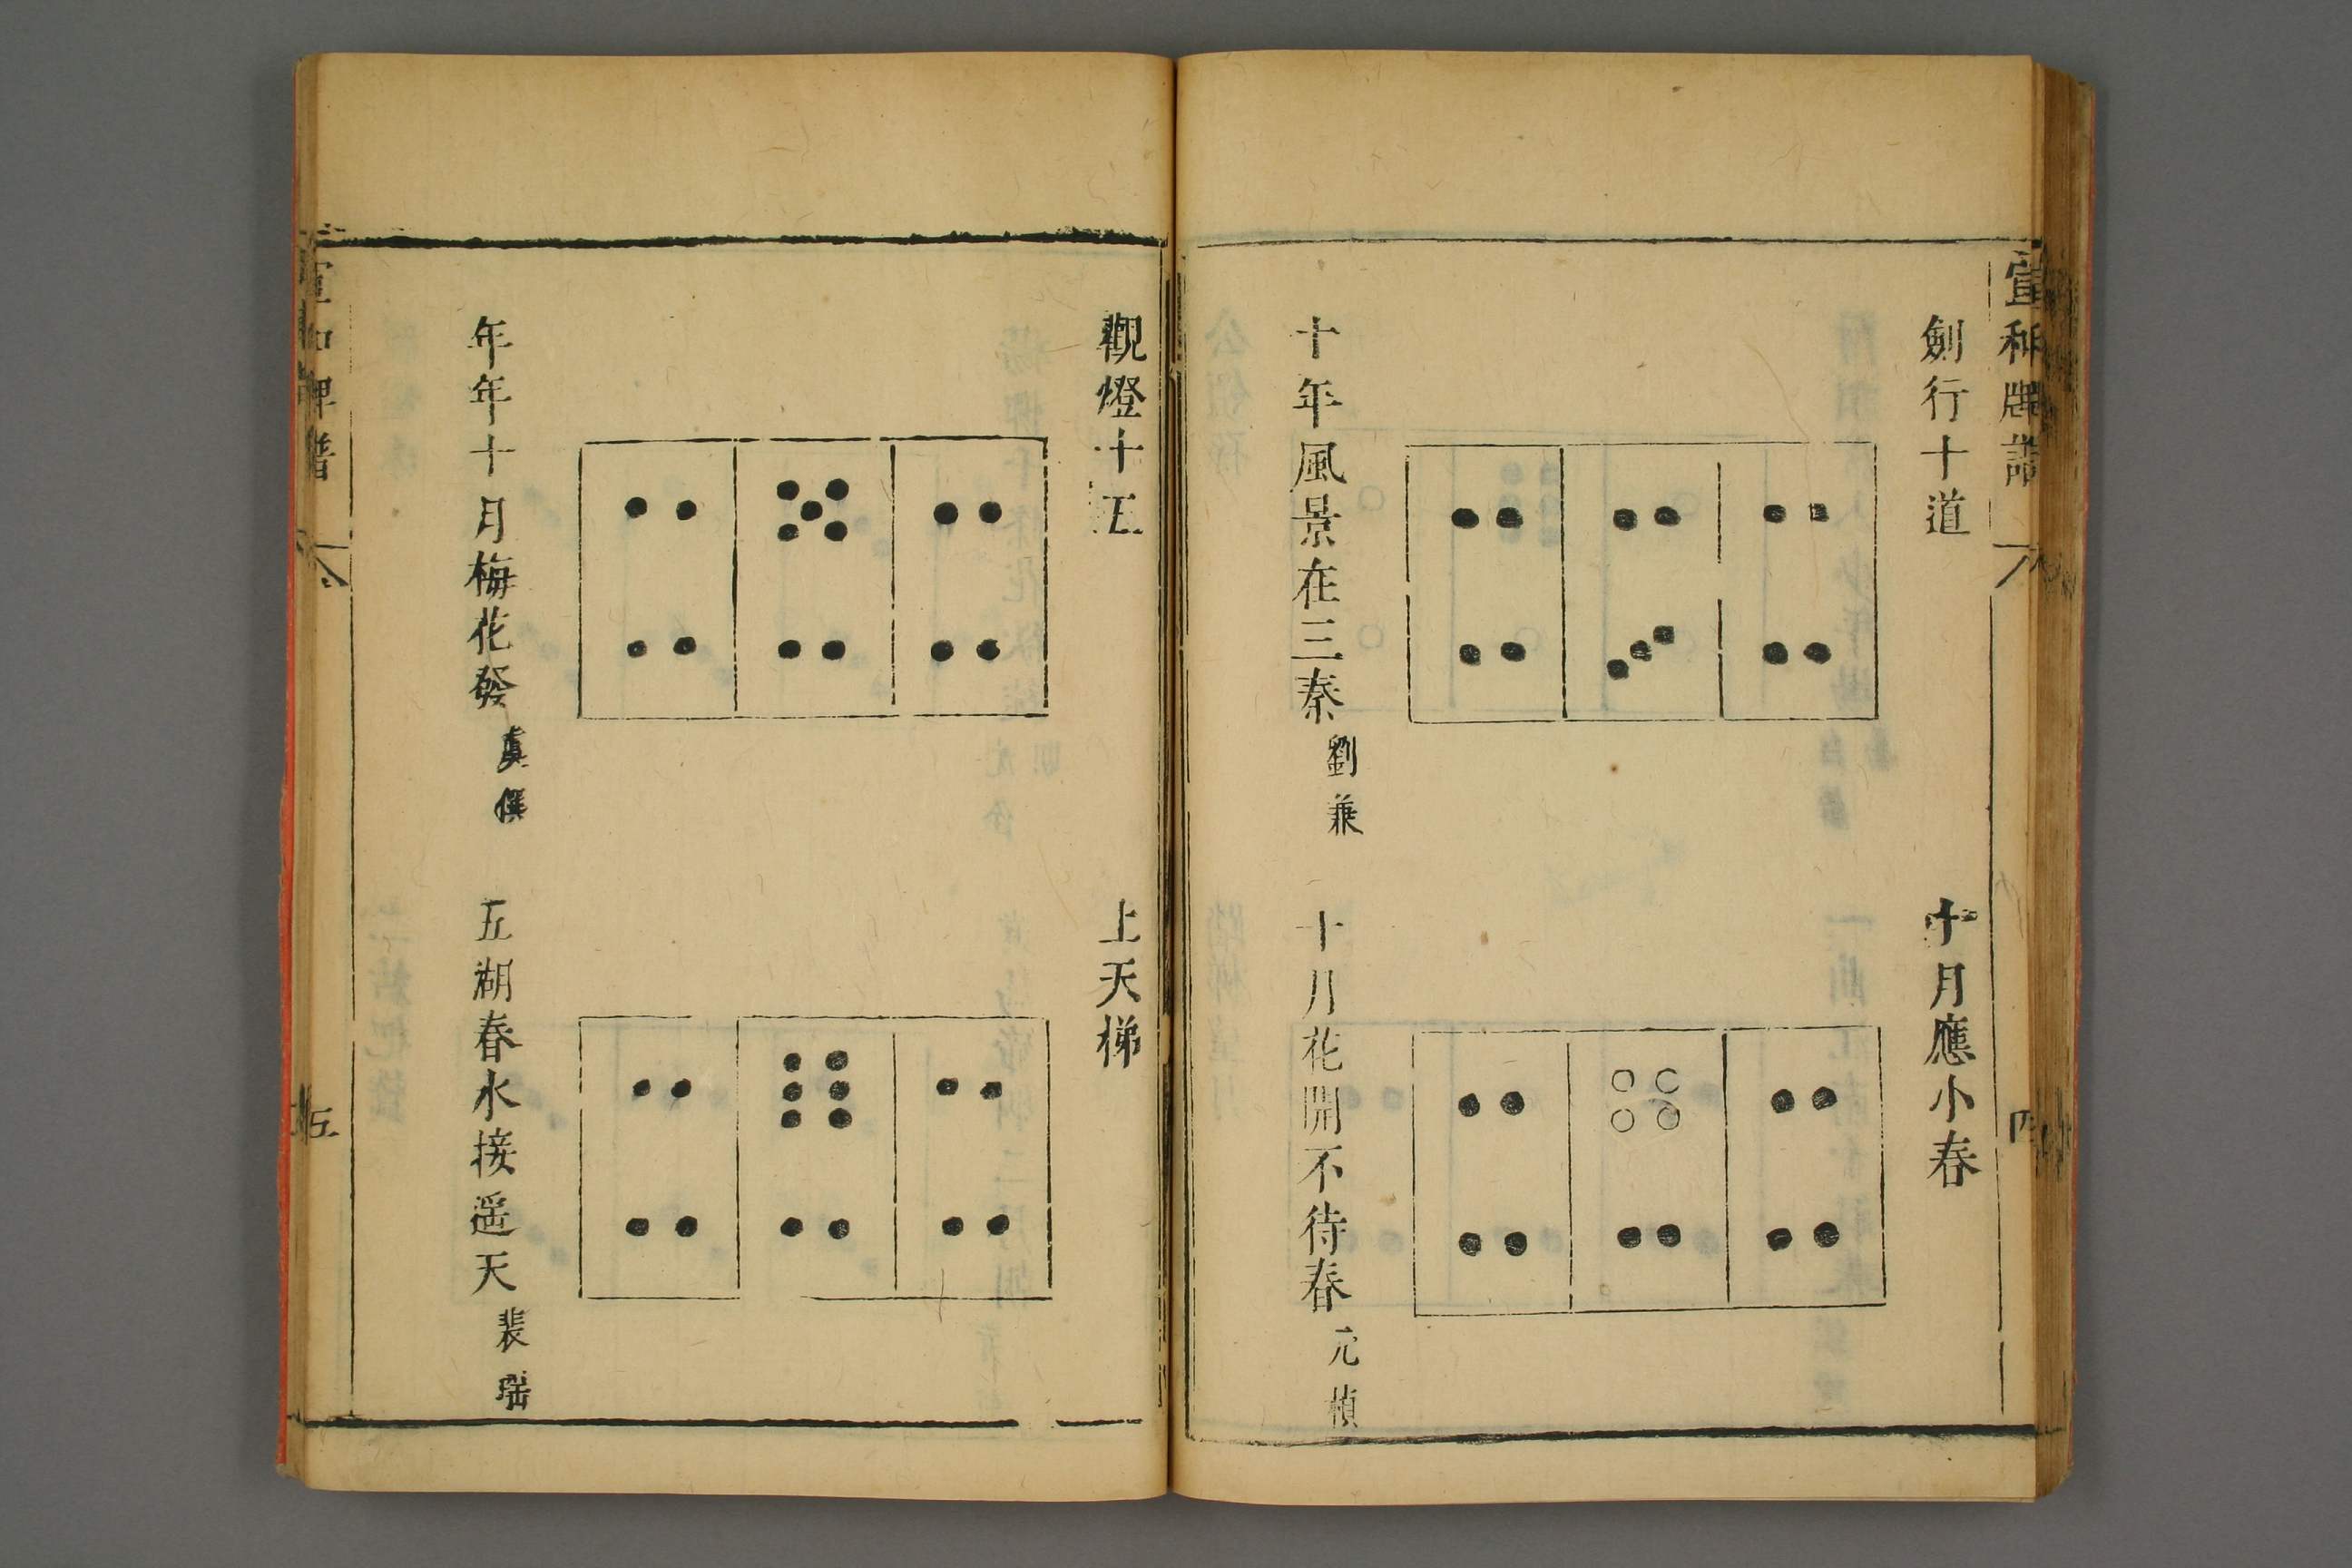 宣和牌譜
劍行十道
十年風景在三秦
劉兼
十月應小春
十月花開不待春
元楨
四
觀燈十五
年年十月梅花發
上天梯
五湖春水接遥天
裴瑶
五